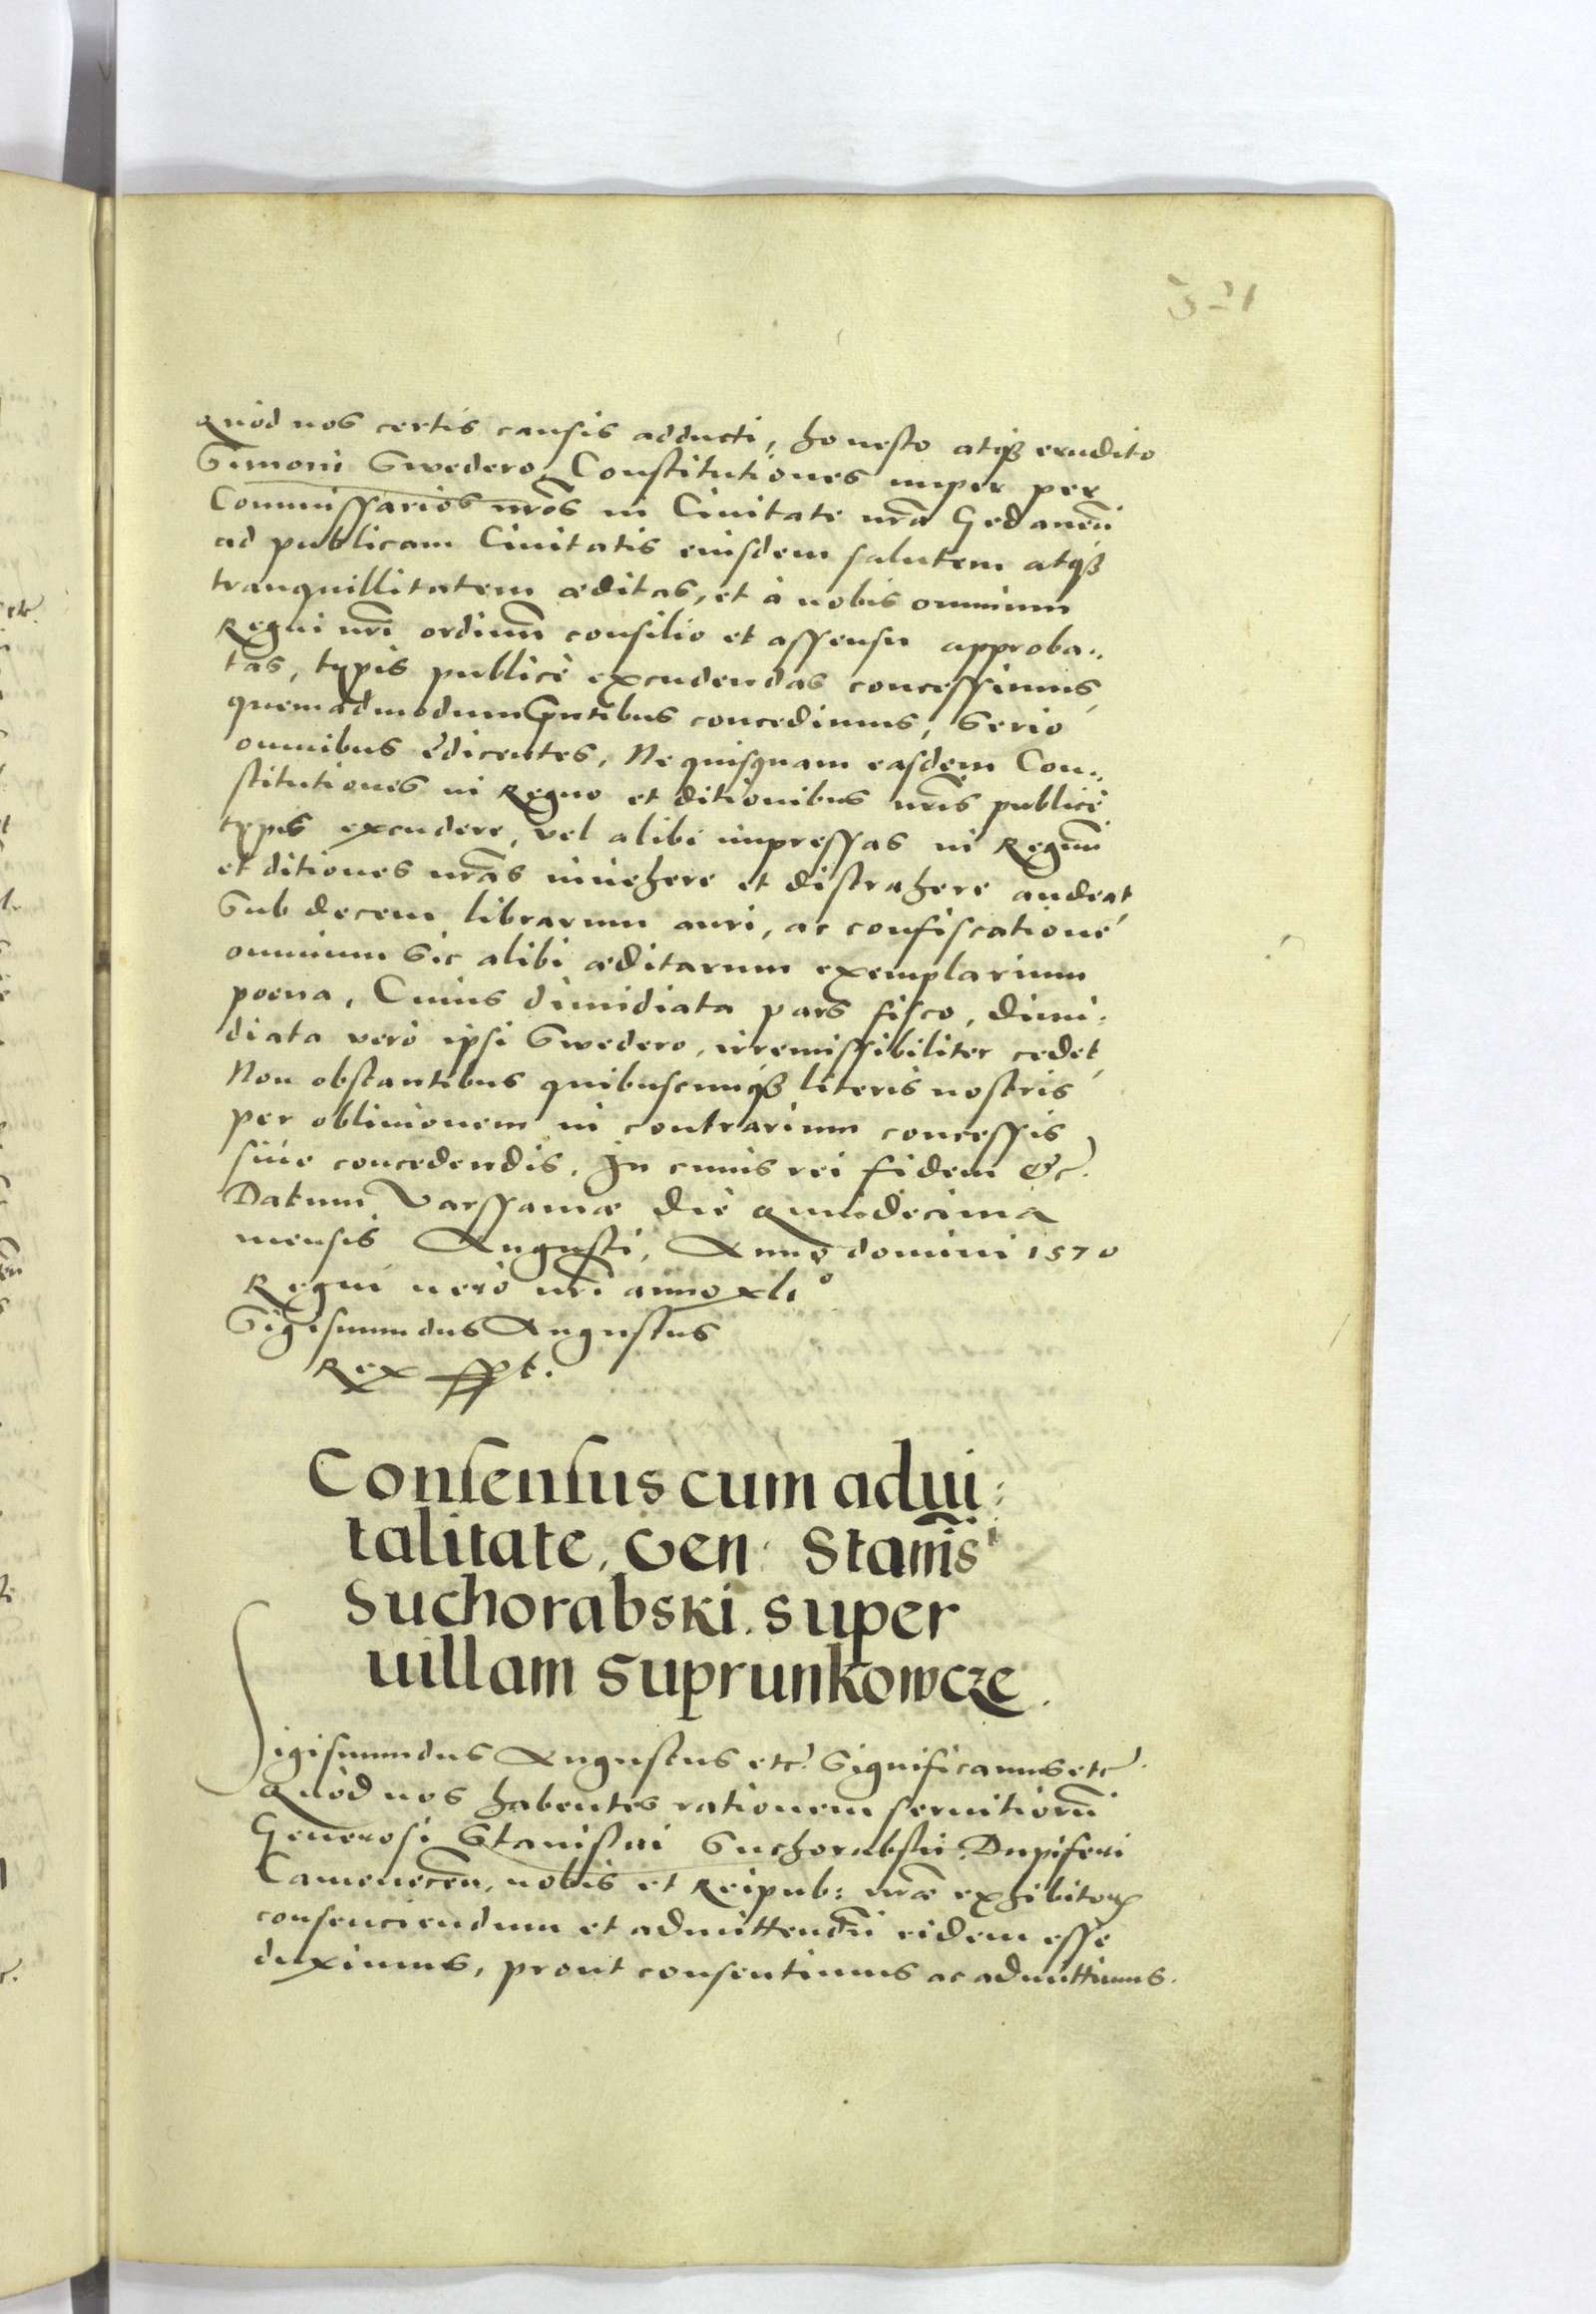 321
Quòd nos certis causis adducti, honesto atq3 erudito
Simoni Swedero, Constitutiones nuper per
Commissarios nr̃os in Ciuitate nr̃a Gedaneñ
ad publicam Ciuitatis eiusdem salutem atq3
tranquillitatem æditas, et à nobis omnium
Regni nr̃i ordinũ consilio et assensu approba-
tas, typis publicè excudendas concessimus,
quemadmodum p̃ntibus concedimus, Serio
omnibus ędicentes, Ne quisquam easdem Con-
stitutiones in Regno et ditionibus nr̃is publicè
typis excudere, vel alibi impressas in Regnũ
et ditiones nr̃as inuehere et distrahere audeat,
Sub decem librarum auri, ac confiscationè
omnium Sic alibi æditarum exemplarium
poena, Cuius dimidiata pars fisco, dimi-
diata verò ipsi Swedero, irremissibiliter cedet,
Non obstantibus quibuscunq3 literis nostris
per obliuionem in contrarium concessis
siue concedendis. In cuius rei fidem etc.
Datum Varssauiæ die Quindecima
mensis Augusti, Anno domini 1570
Regni uerò nr̃i anno xli°
Sigismundus Augustus
Rex sspt.
Consensus cum adui-
talitate, Gen: Stanis̃i
Suchorabski. super
uillam Suprunkowcze.
Sigismundus Augustus etc. Significamus etc.
Quòd nos habentes rationem seruitiorũ
Generosi Stanislai Suchorabski Dapiferi
Cameneceñ, nobis et Reipub: nr̃æ exhibitorꝝ
consenciendum et admittendũ eidem esse
duximus, prout consentimus ac admittimus.